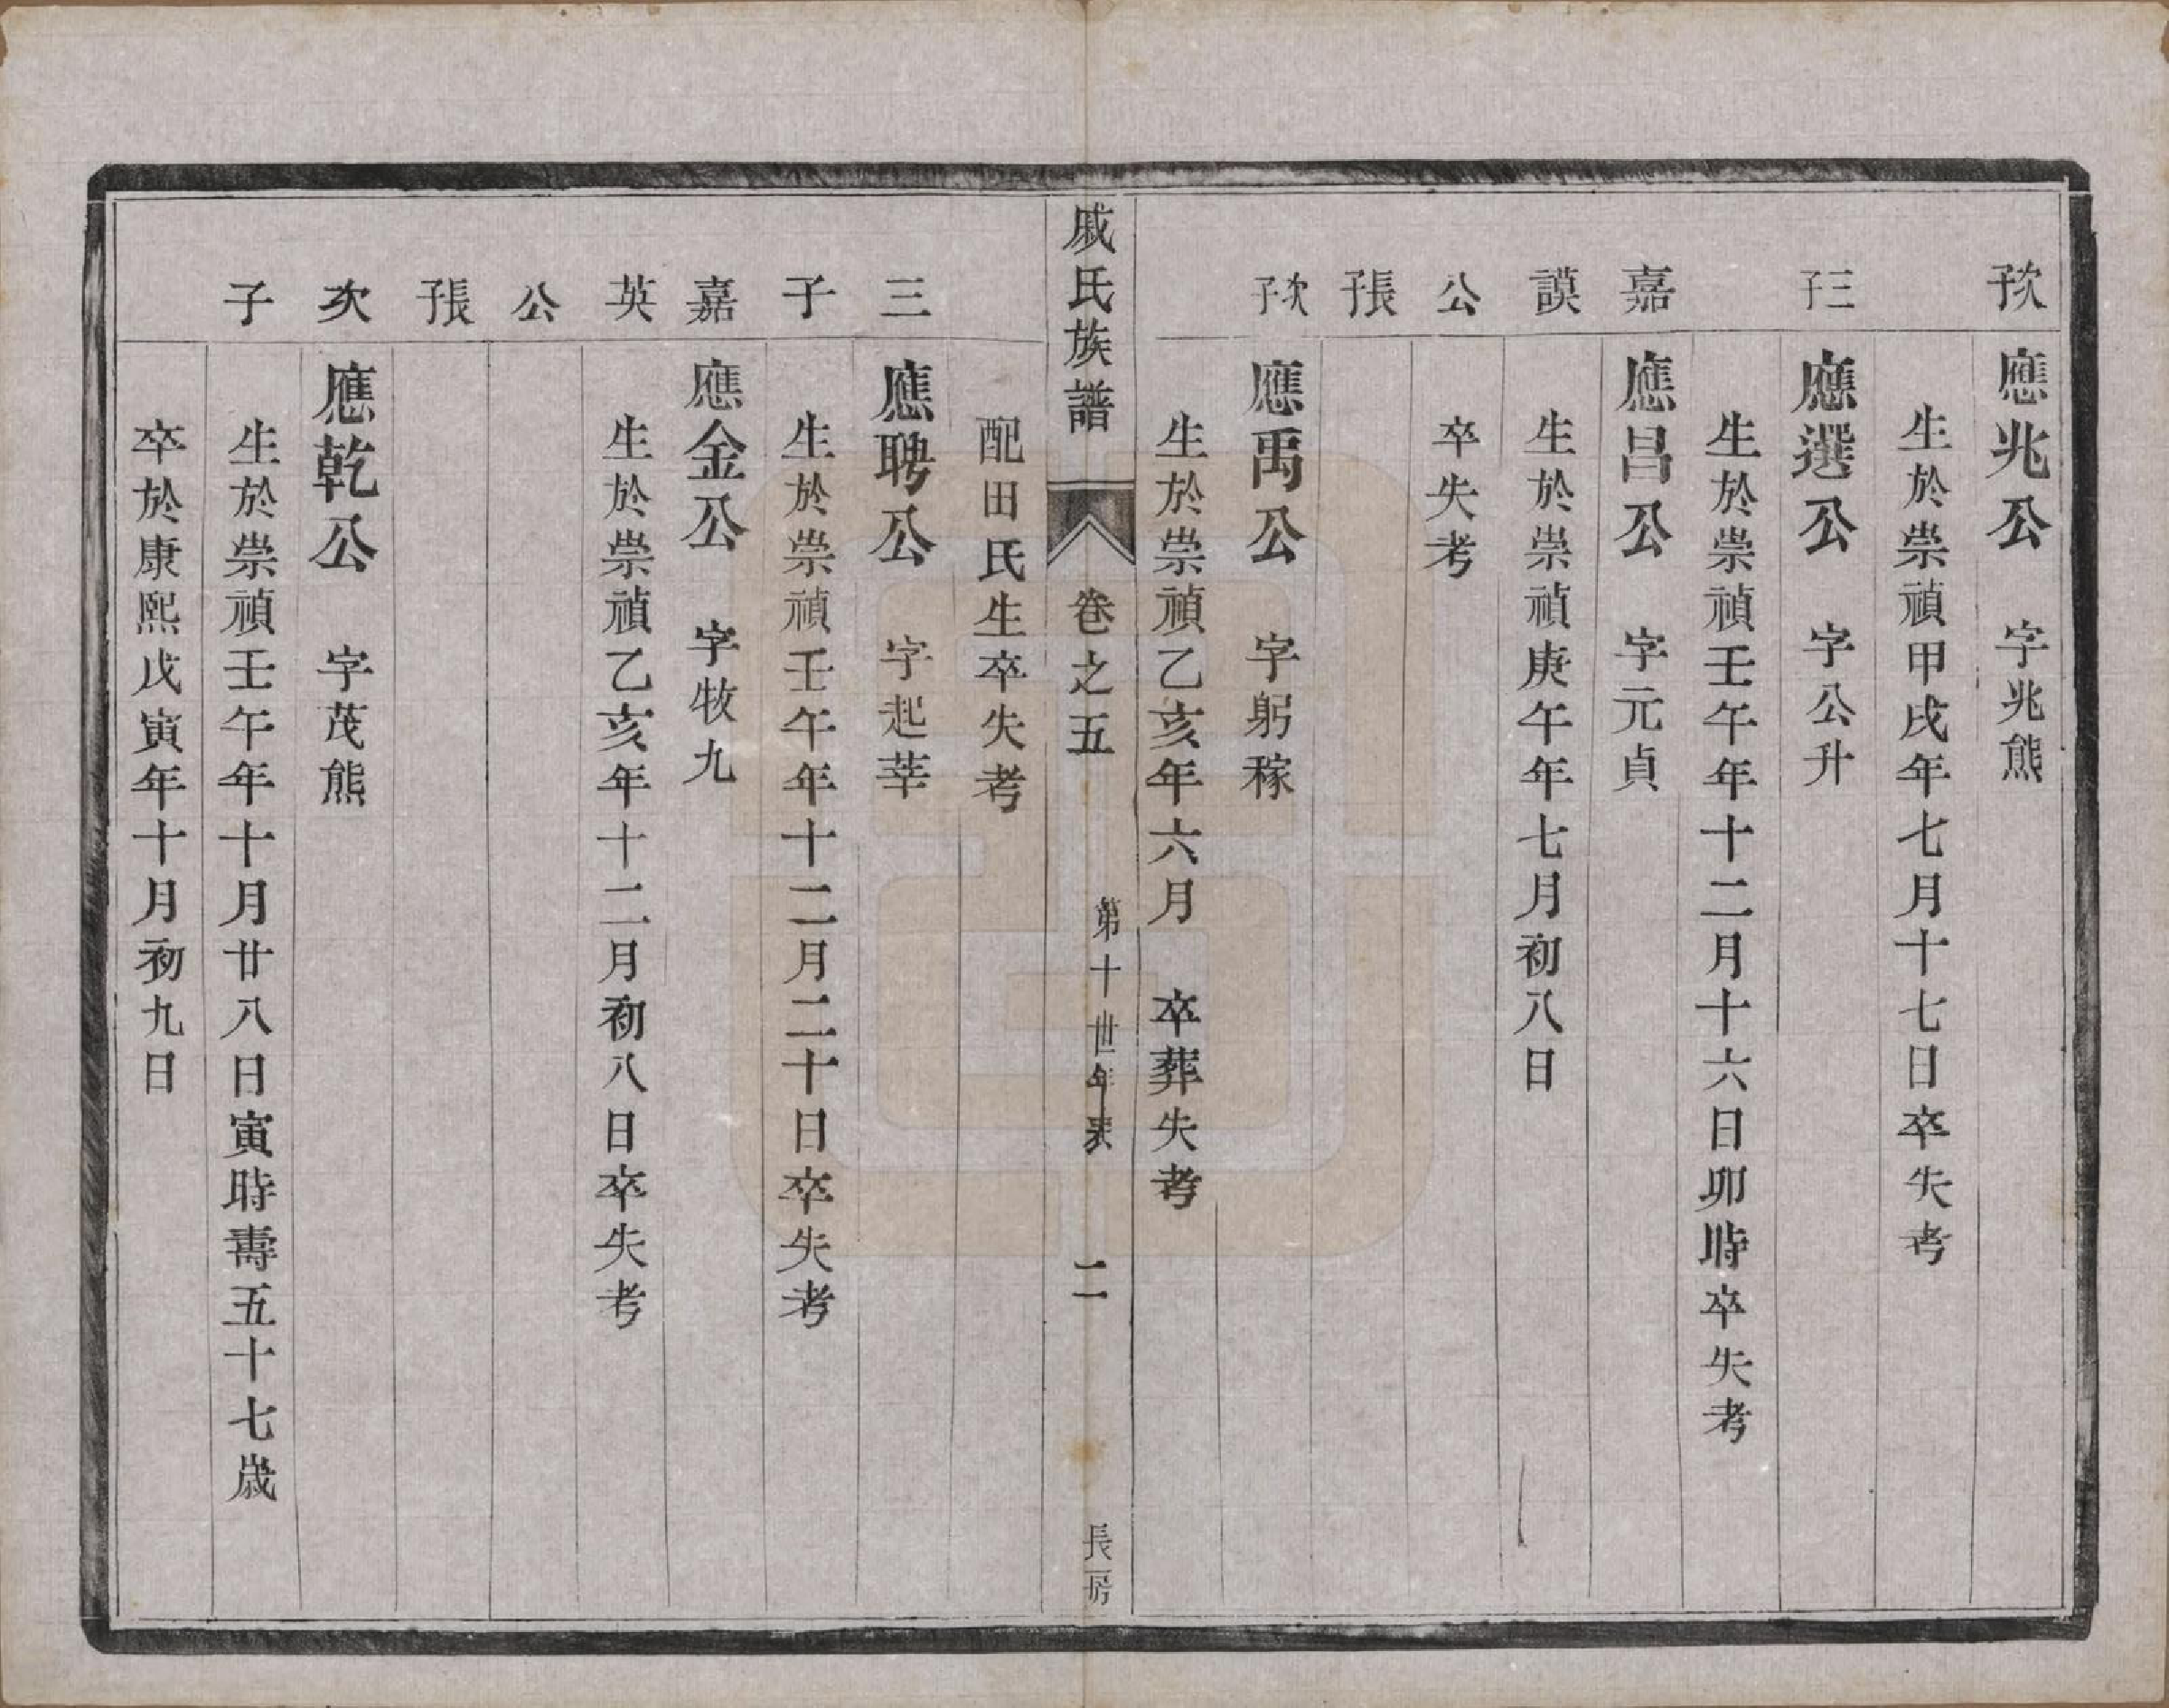 次子
應兆公　字兆熊
生於崇禎甲戌年七月十七日卒失考
三子
應選公　字公升
生於崇禎壬午年十二月十六日卯時卒失考
嘉謨公長子
應昌公　字元貞
生於崇禎庚午年七月初八日
卒失考
次子
應禹公　字躬稼
生於崇禎乙亥年六月　卒葬失考
戚氏族譜　卷之五　第十世年表　二　長房
配田氏生卒失考
三子
應聘公　字起莘
生於崇禎壬午年十二月二十日卒失考
嘉英公長子
應金公　字牧九
生於崇禎乙亥年十二月初八日卒失考
次子
應乾公　字茂熊
生於崇禎壬午年十月廿八日寅時壽五十七歲
卒於康熙戊寅年十月初九日